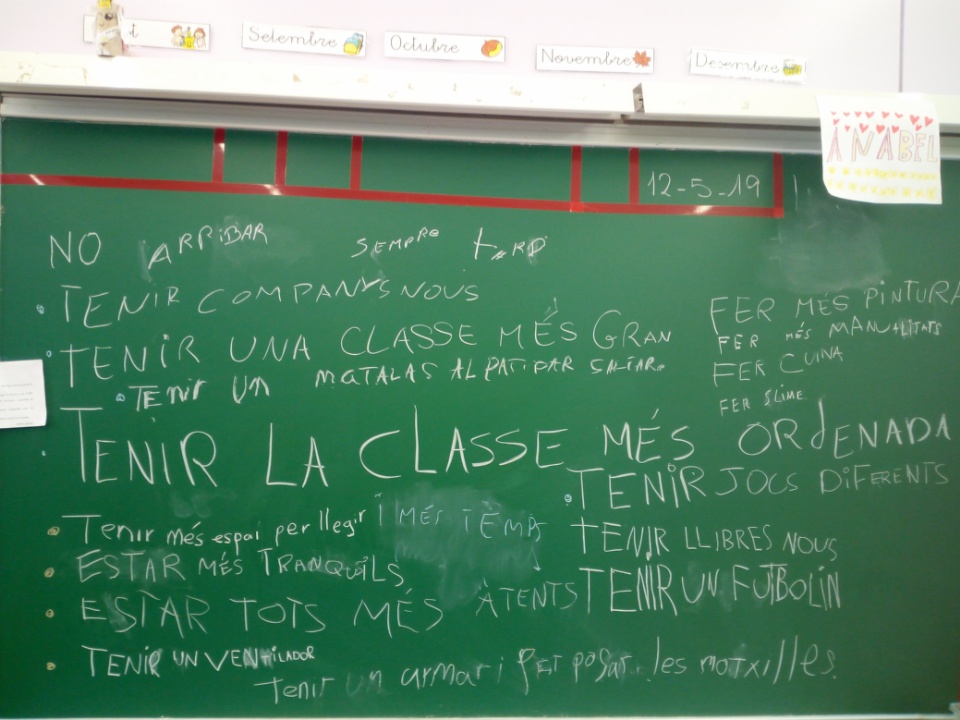 t
Setembre
Octubre
Novembre
Desembre
ANABEL
12-5-19
NO ARRiBAR SEMPRE tARD
TENIR COMPANYS NOUS
TENiR UNA CLASSE MÉS GRAN
TEnir UN MATALAS AL PATI PAR SALTAR
TENIR LA CLASSE MÉS ORdENADA
Tenir més espai per llegir I MÉS TEMPS
ESTAR MÉS TRANQUÎLS
ESTAR TOTS MÉS ATENTS
TENIR UN VENtiLADOR
tenir un armari per posar les motxilles.
FER MÉS PiNTURA
FER MÉS MANUALITATS
FER CUINA
FER SLIME
TENiR JOCS DiFERENTS
tENIR LLIBRES NOUS
TENIR UN FUTBOLÍN